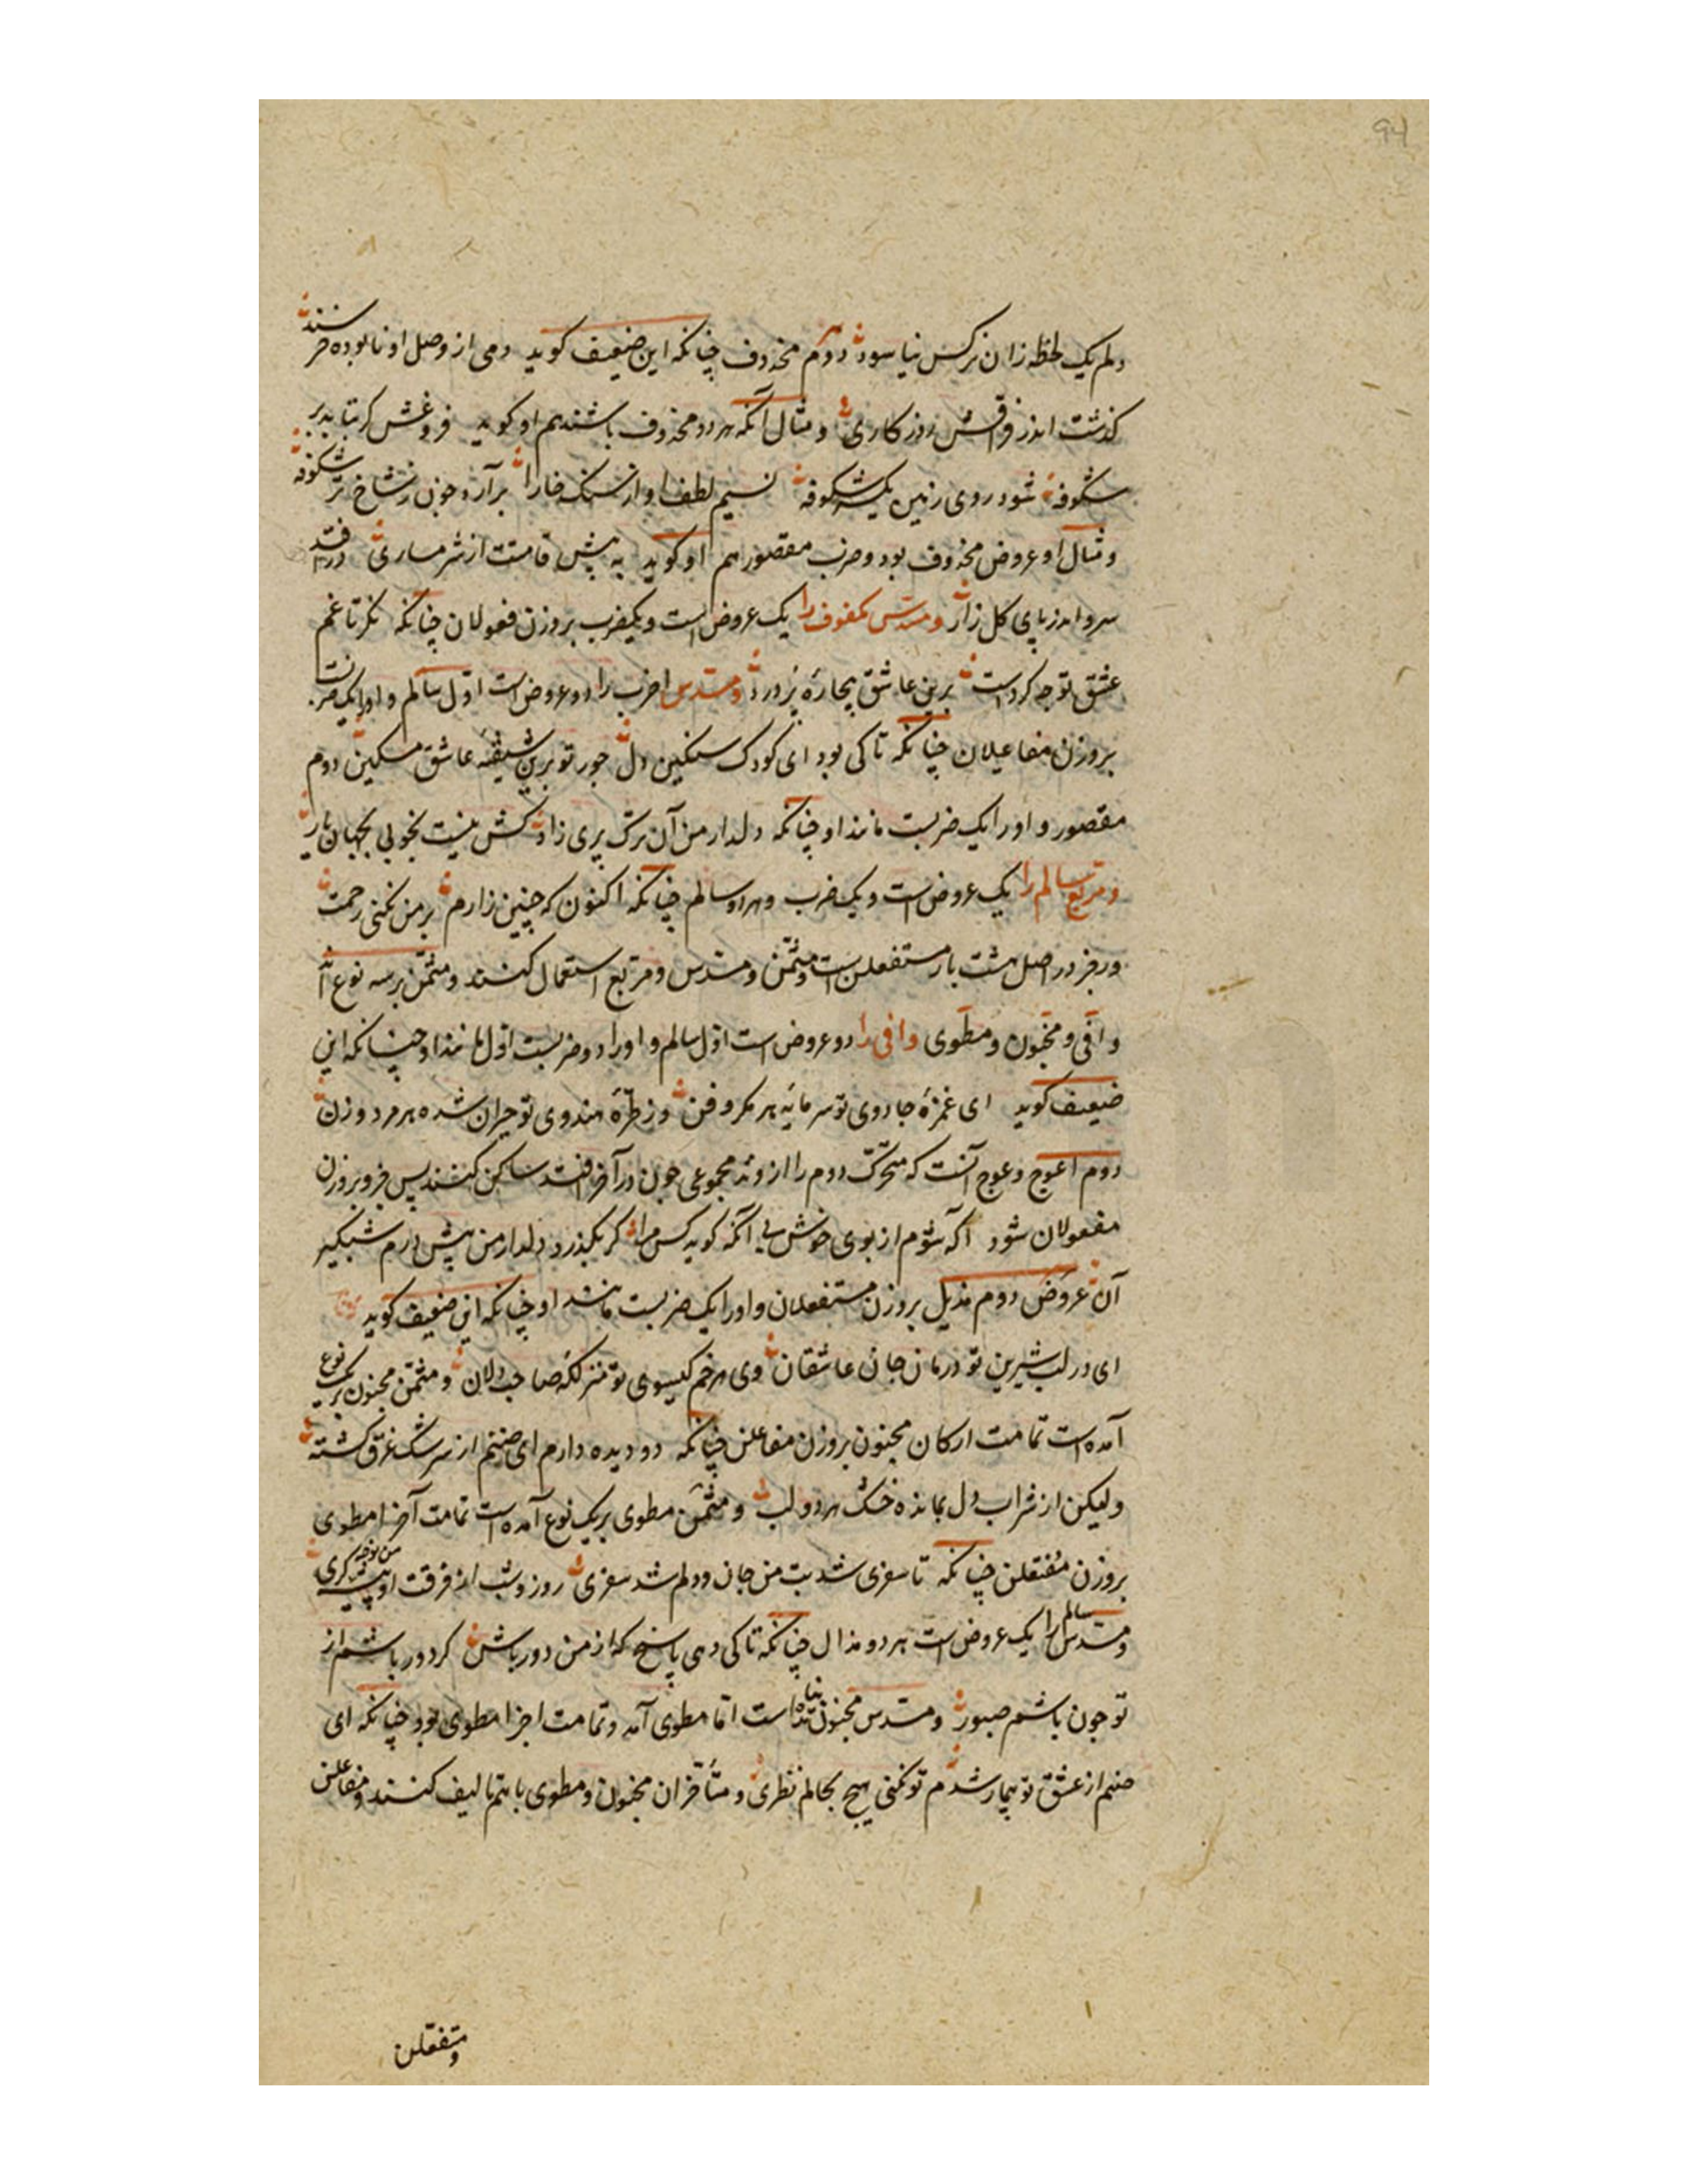 94
دلم یک لحظه زان نرکس نیاسود دوم محذوف چنانکه این ضعیف کوید دمی از وصل او نابوده خرسند
کذشت اندر فراقش روزکاری و مثال آنکه هردو محذوف باشند هم او کوید فروغش کر بتابد بر
شکوفه شود روی زمین یکسر شکوفه نسیم لطف او از سنک خارا برآرد جون ز شاخ تر شکوفه
و مثال او عروض محذوف بود و ضرب مقصور هم او کوید به پیش قامتت از شرمساری درافتد
سرو اندر پای کل زار و مسدس مکفوف را یک عروض است و یکضرب بروزن فعولان چنانکه نکر تا غم
عشق تو جه کردست برین عاشق بیجاره پر درد و مسدس اخرب را دو عروض است اول سالم و او را یک ضربست
بروزن مفاعیلان چنانکه تا کی بود ای کودک سنکین دل جور تو برین شیفته عاشق مسکین دوم
مقصور و او را یک ضربست مانند او چنانکه دلدار من آن ترک پری زاد کش نیست بخوبی بجهان یار
و مربع سالم را یک عروض است و یک ضرب و هردو سالم چنانکه اکنون که چنین زارم بر من نکنی رحمت
و رجز در اصل هشت بار مستفعلن است و مثمن و مسدس و مربع استعمال کنند و مثمن بر سه نوع آید
وافی و مخبون و مطوی وافی را دو عروض است اول سالم و او را دو ضربست اول مانند او چنانکه این
ضعیف کوید ای غمزهٔ جادوی تو سرمایهٔ هر مکر و فن وز طرهٔ هندوی تو حیران شده هر مرد و زن
دوم اعوج و عوج آنست که متحرک دوم را از وتد مجموعی جون در آخر افتد ساکن کنند پس ضرب بروزن
مفعولان شود آکه شوم از بوی خوش بی آنکه کوید کس مرا کر بکذرد دلدار من پیش درم شبکیر
آن عروض دوم مذیل بروزن مستفعلان و او را یک ضربست مانند او چنانکه این ضعیف کوید
ای در لب شیرین تو درمان جان عاشقان وی هر خم کیسوی تو منزلکه صاحب دلان و مثمن مخبون بر یک نوع
آمده است تمامت ارکان مخبون بروزن مفاعلن چنانکه دو دیده دارم ای صنم از سرشک غرق کشته
ولیکن از شراب دل بمانده خشک هردو لب و مثمن مطوی بر یک نوع آمده است تمامت اجزا مطوی
بروزن مفتعلن چنانکه تا سفری شد بت من جان و دلم شد سفری روز و شب از فرقت او پیشه من نوحه کری
و مسدس سالم را یک عروض است هردو مذال چنانکه تا کی دهی پاسخ که از من دور باش کر دور باشم از
تو جون باشم صبور و مسدس مخبون نیامده است اما مطوی آمد و تمامت اجزا مطوی بود چنانکه ای
صنم از عشق تو بیمار شدم تو نکنی هیج بحالم نظری و متأخران مخبون و مطوی با هم تالیف کنند و مفاعلن
و مفتعلن